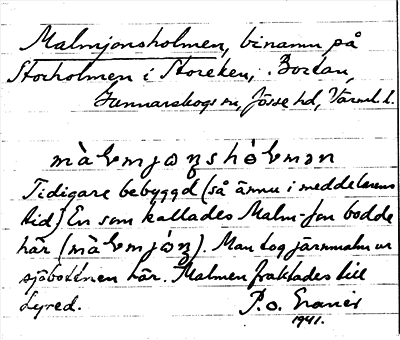 Malmjonsholmen, binamn på
Storholmen i Storeken, Bortan,
Gunnarskogs sn, Jösse hd, Värml. l.
Tidigare bebyggd (så ännu i meddelarens
tid) En som kallades Malm-Jon bodde
här (màɭmjòn). Man tog järnmalm ur
sjöbottnen här. Malmen fraktades till
Lyred.
P. o.
1941.